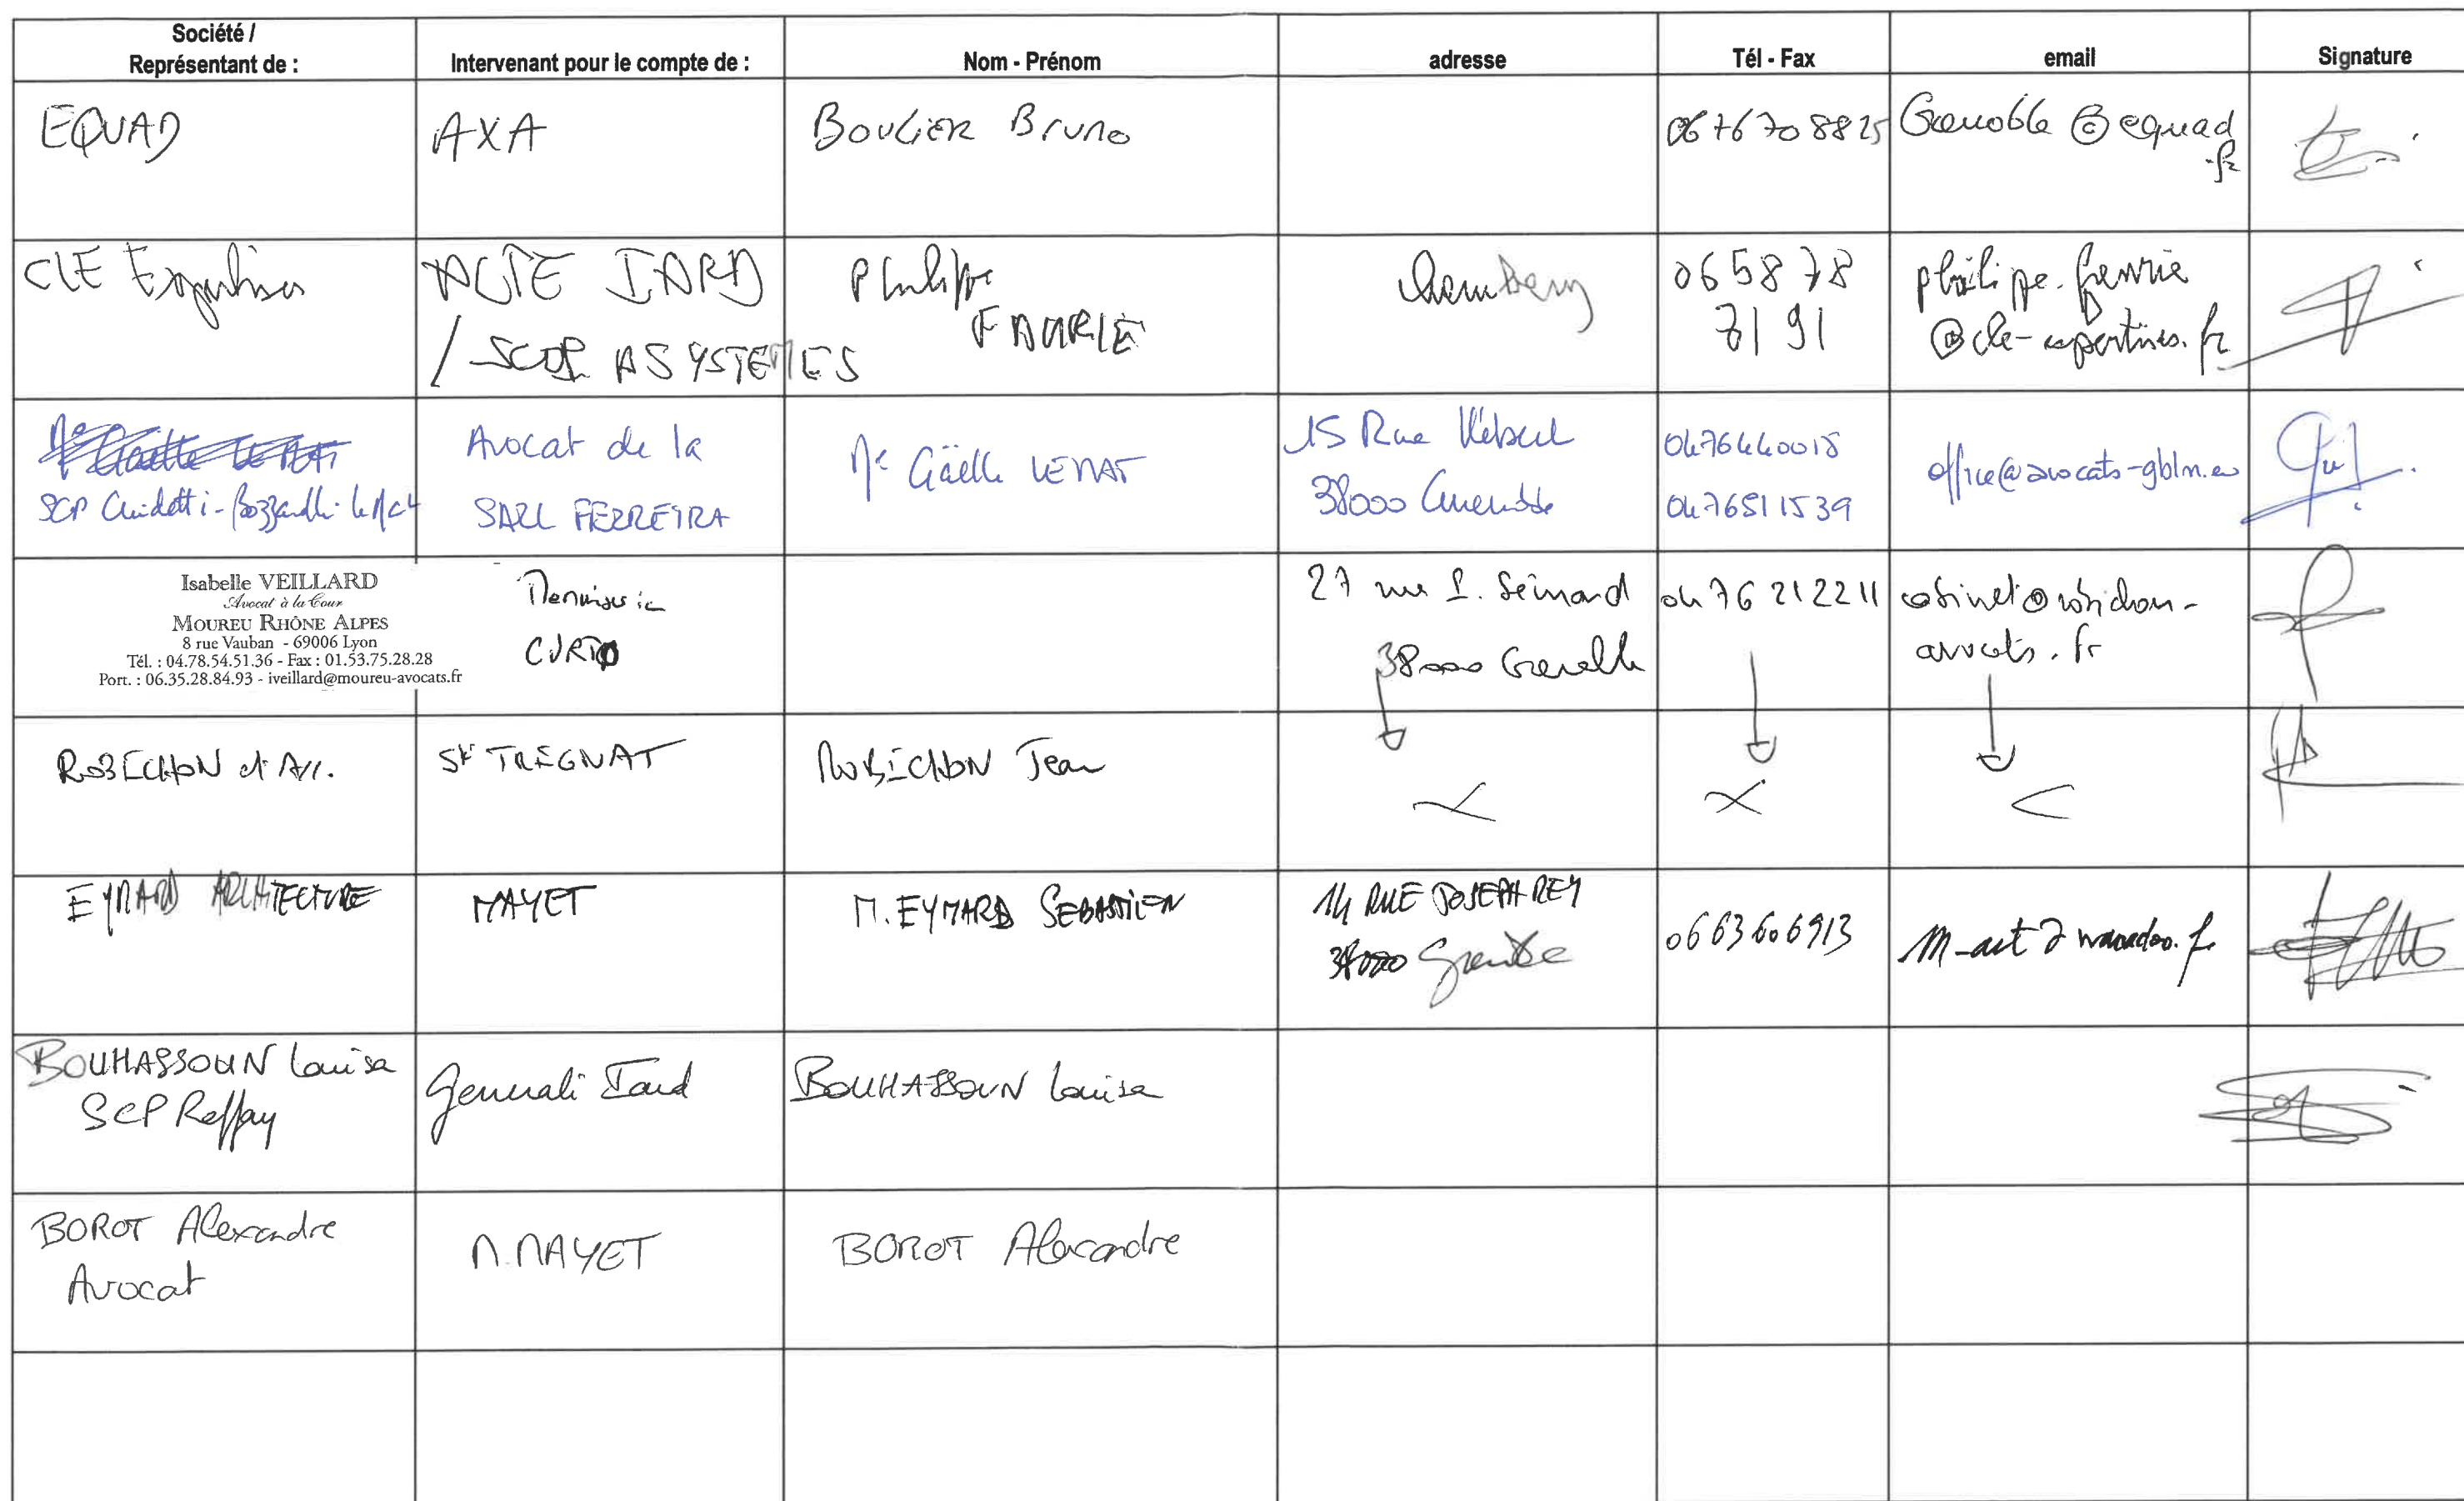 Société /
Représentant de :
Intervenant pour le compte de :
Nom - Prénom
adresse
Tél - Fax
email
Signature
EQUAD
AXA
Boulier Bruno
06 76 70 88 25
Grenoble @ equad
.fr
CLE Expertises
ACTE IARD
/ SCOP ASYSTEMES
Philippe
FAURIE
Chambery
06 58 78
71 91
philippe.faurie
@cle-expertises.fr
SCP Guidetti-Bozzarelli-Le Mat
Avocat de la
SARL FERREIRA
Me Gaëlle LE MAT
15 Rue Hébert
38000 Grenoble
0476440015
0476511539
office@avocats-gblm.eu
Isabelle VEILLARD
Avocat à la Cour
MOUREU RHÔNE ALPES
8 rue Vauban - 69006 Lyon
Tél. : 04.78.54.51.36 - Fax : 01.53.75.28.28
Port. : 06.35.28.84.93 - iveillard@moureu-avocats.fr
Menuiserie
CURTO
27 rue P. Sémard
38000 Grenoble
04 76 21 22 11
cabinet@robichon-
avocats.fr
ROBICHON et Ass.
Sté TREGNAT
ROBICHON Jean
EYMARD ARCHITECTURE
MAYET
M. EYMARD SEBASTIEN
14 RUE JOSEPH REY
38000 Grenoble
0663606913
m-art@wanadoo.fr
BOUHASSOUN Louisa
SCP Reffay
Generali Iard
BOUHASSOUN Louisa
BOROT Alexandre
Avocat
M. MAYET
BOROT Alexandre